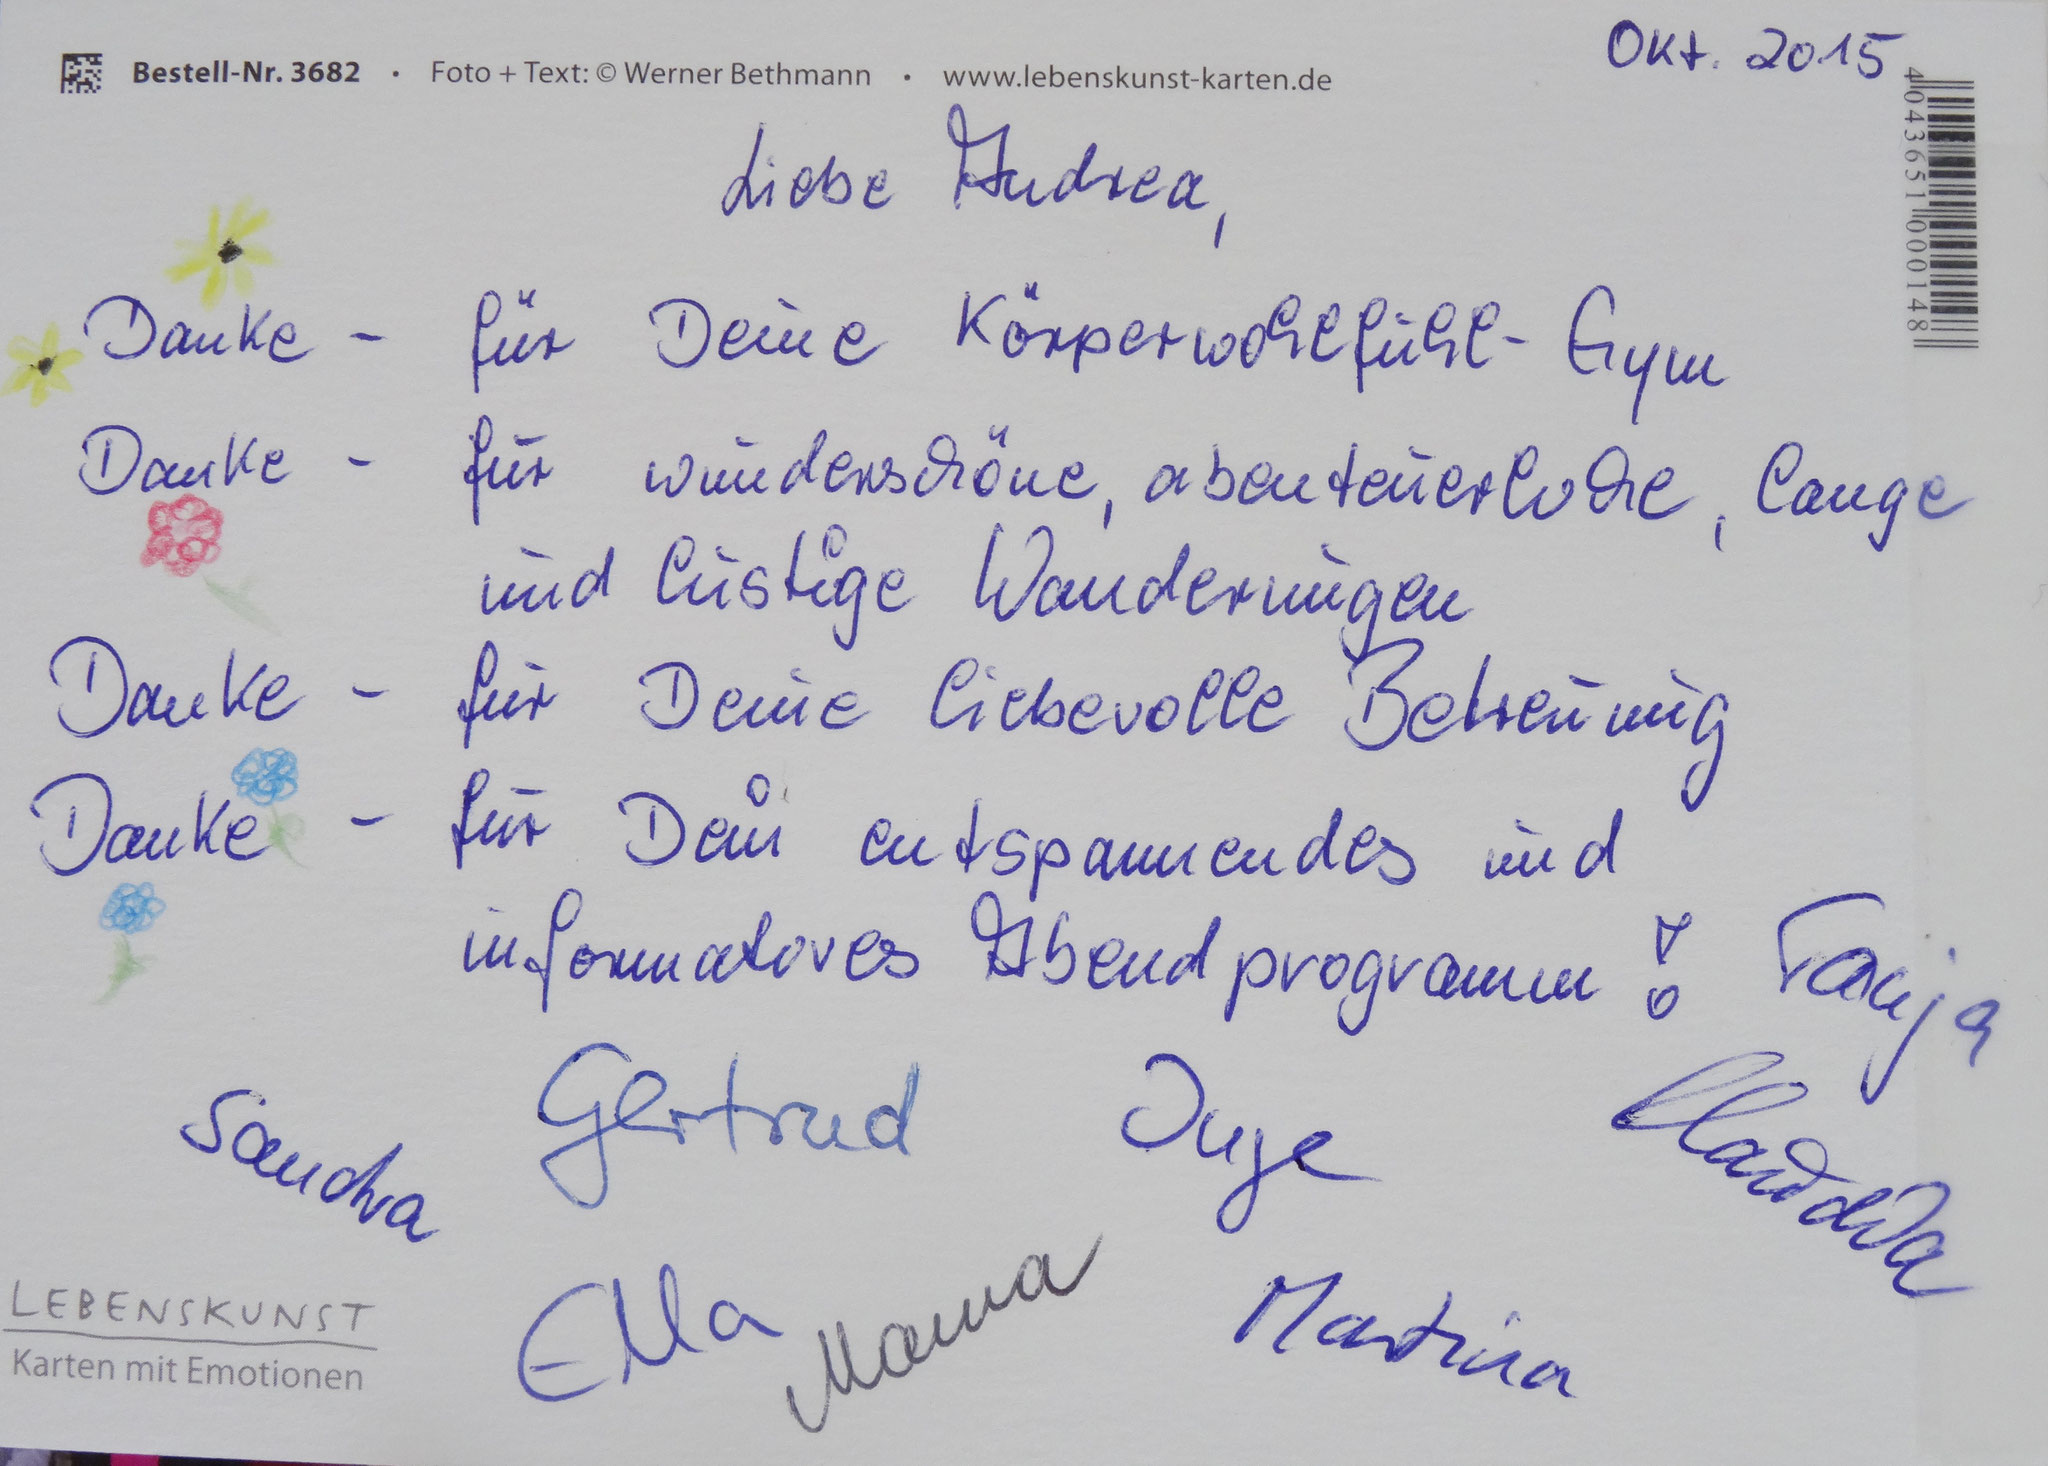 Okt. 2015
Bestell-Nr. 3682 · Foto + Text: © Werner Bethmann · www.lebenskunst-karten.de
4 043651 000148
Liebe Andrea,
Danke - für Deine Körperwohlfühl-Gym
Danke - für wunderschöne, abenteuerliche, lange
und lustige Wanderungen
Danke - für Deine liebevolle Betreuung
Danke - für Dein entspannendes und
informatives Abendprogramm!
Tanja
Sandra
Gertrud
Inge
Claudia
Ella
Martina
LEBENSKUNST
Karten mit Emotionen